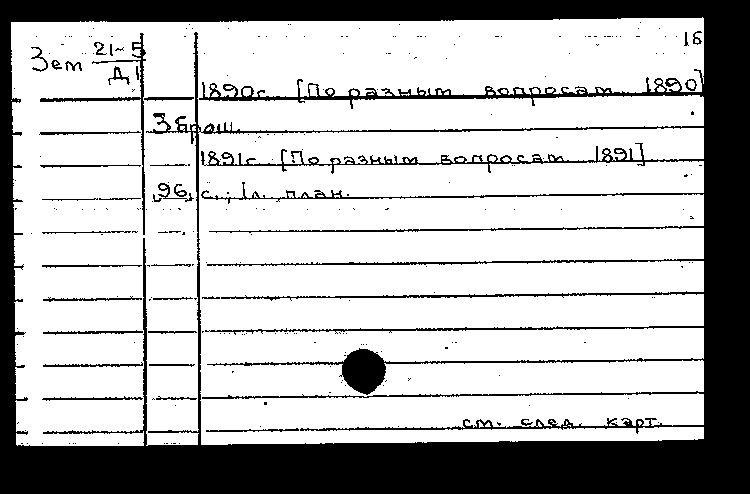 16
Зем 21-5
Д1
1890г. [По разным вопросам 1890]
3 брош.
1891г. [По разным вопросам 1891]
[96] с.; 1л. план.
см. след. карт.